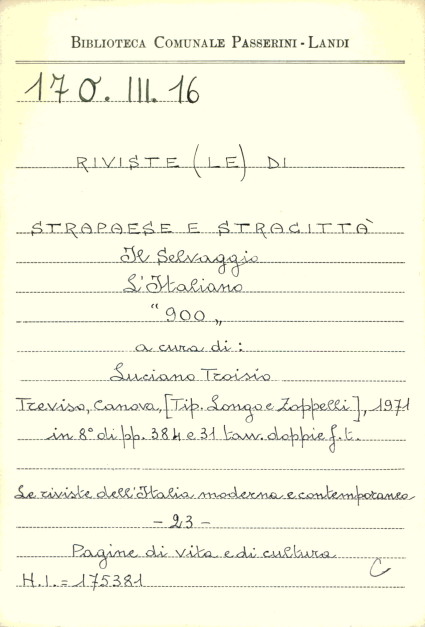 BIBLIOTECA COMUNALE PASSERINI - LANDI
17 O. III. 16
RIVISTE (LE) DI
STRAPAESE E STRACITTÀ
Il Selvaggio
L'Italiano
"900„
a cura di:
Luciano Troisio
Treviso, Canova, [Tip. Longo e Zoppelli], 1971
in 8° di pp. 384 e 31 tavv. doppie f.t.
Le riviste dell'Italia moderna e contemporanea
- 23 -
Pagine di vita e di cultura
C
H.I. = 175381